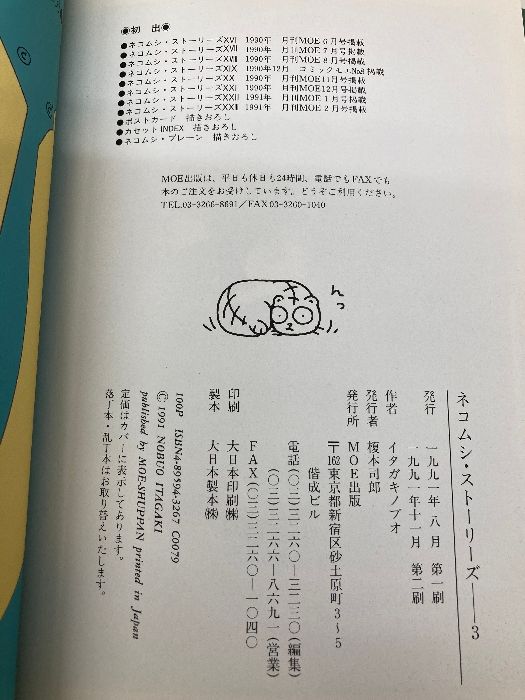 ◉初 出◉
●ネコムシ・ストーリーズXVI 1990年 月刊MOE6月号掲載
●ネコムシ・ストーリーズXVII 1990年 月刊MOE7月号掲載
●ネコムシ・ストーリーズXVIII 1990年 月刊MOE8月号掲載
●ネコムシ・ストーリーズXIX 1990年12月 コミックモエNo.8掲載
●ネコムシ・ストーリーズXX 1990年 月刊MOE11月号掲載
●ネコムシ・ストーリーズXXI 1990年 月刊MOE12月号掲載
●ネコムシ・ストーリーズXXII 1991年 月刊MOE1月号掲載
●ネコムシ・ストーリーズXXIII 1991年 月刊MOE2月号掲載
●ポストカード 描きおろし
●カセットINDEX 描きおろし
●ネコムシ・プレーン 描きおろし
MOE出版は、平日も休日も24時間、電話でもFAXでも
本のご注文をお受けしています。どうぞご利用ください。
TEL.03-3266-8691/FAX03-3260-1040
んっ
ネコムシ・ストーリーズ——3
発行 一九九一年八月 第一刷
一九九一年十一月 第二刷
作者 イタガキノブオ
発行者 榎本司郎
発行所 MOE出版
〒162東京都新宿区砂土原町3〜5
偕成ビル
電話(〇三)三二六〇—三二三〇(編集)
(〇三)三二六六—八六九一(営業)
FAX(〇三)三二六〇—一〇四〇
印刷 大日本印刷㈱
製本 大日本製本㈱
100P ISBN4-89594-3267 C0079
© 1991 NOBUO ITAGAKI
published by MOE-SHUPPAN printed in Japan
定価はカバーに表示してあります。
落丁本・乱丁本はお取り替えいたします。